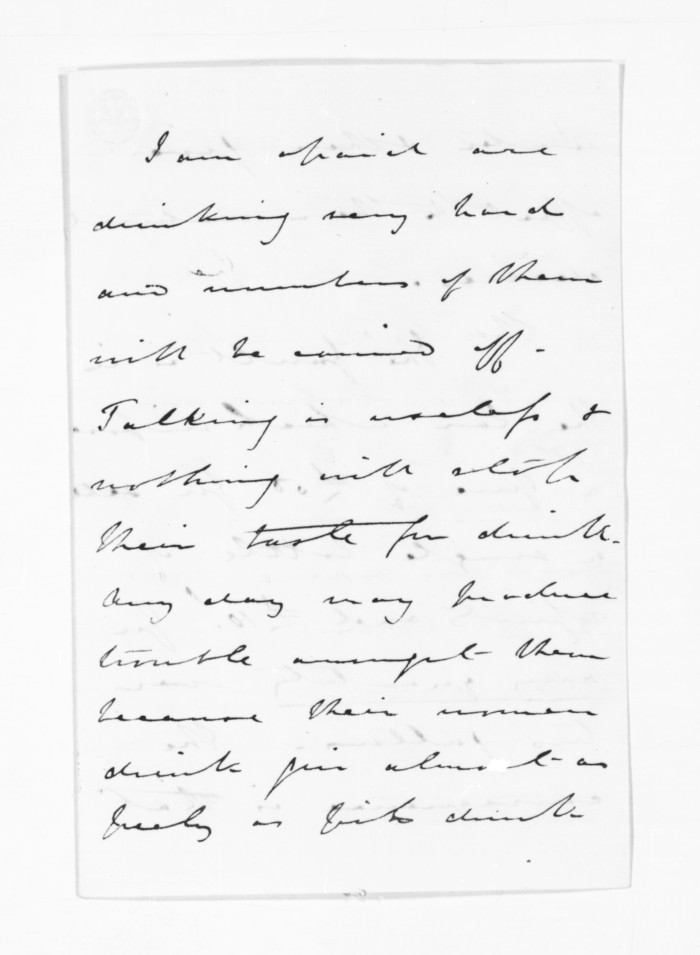 I am afraid are
drinking very hard
and numbers of them
will be carried off -
Talking is useless &
nothing will stop
their taste for drink.
Any day may produce
trouble amongst them
because their women
drink gin almost as
freely as fish drink